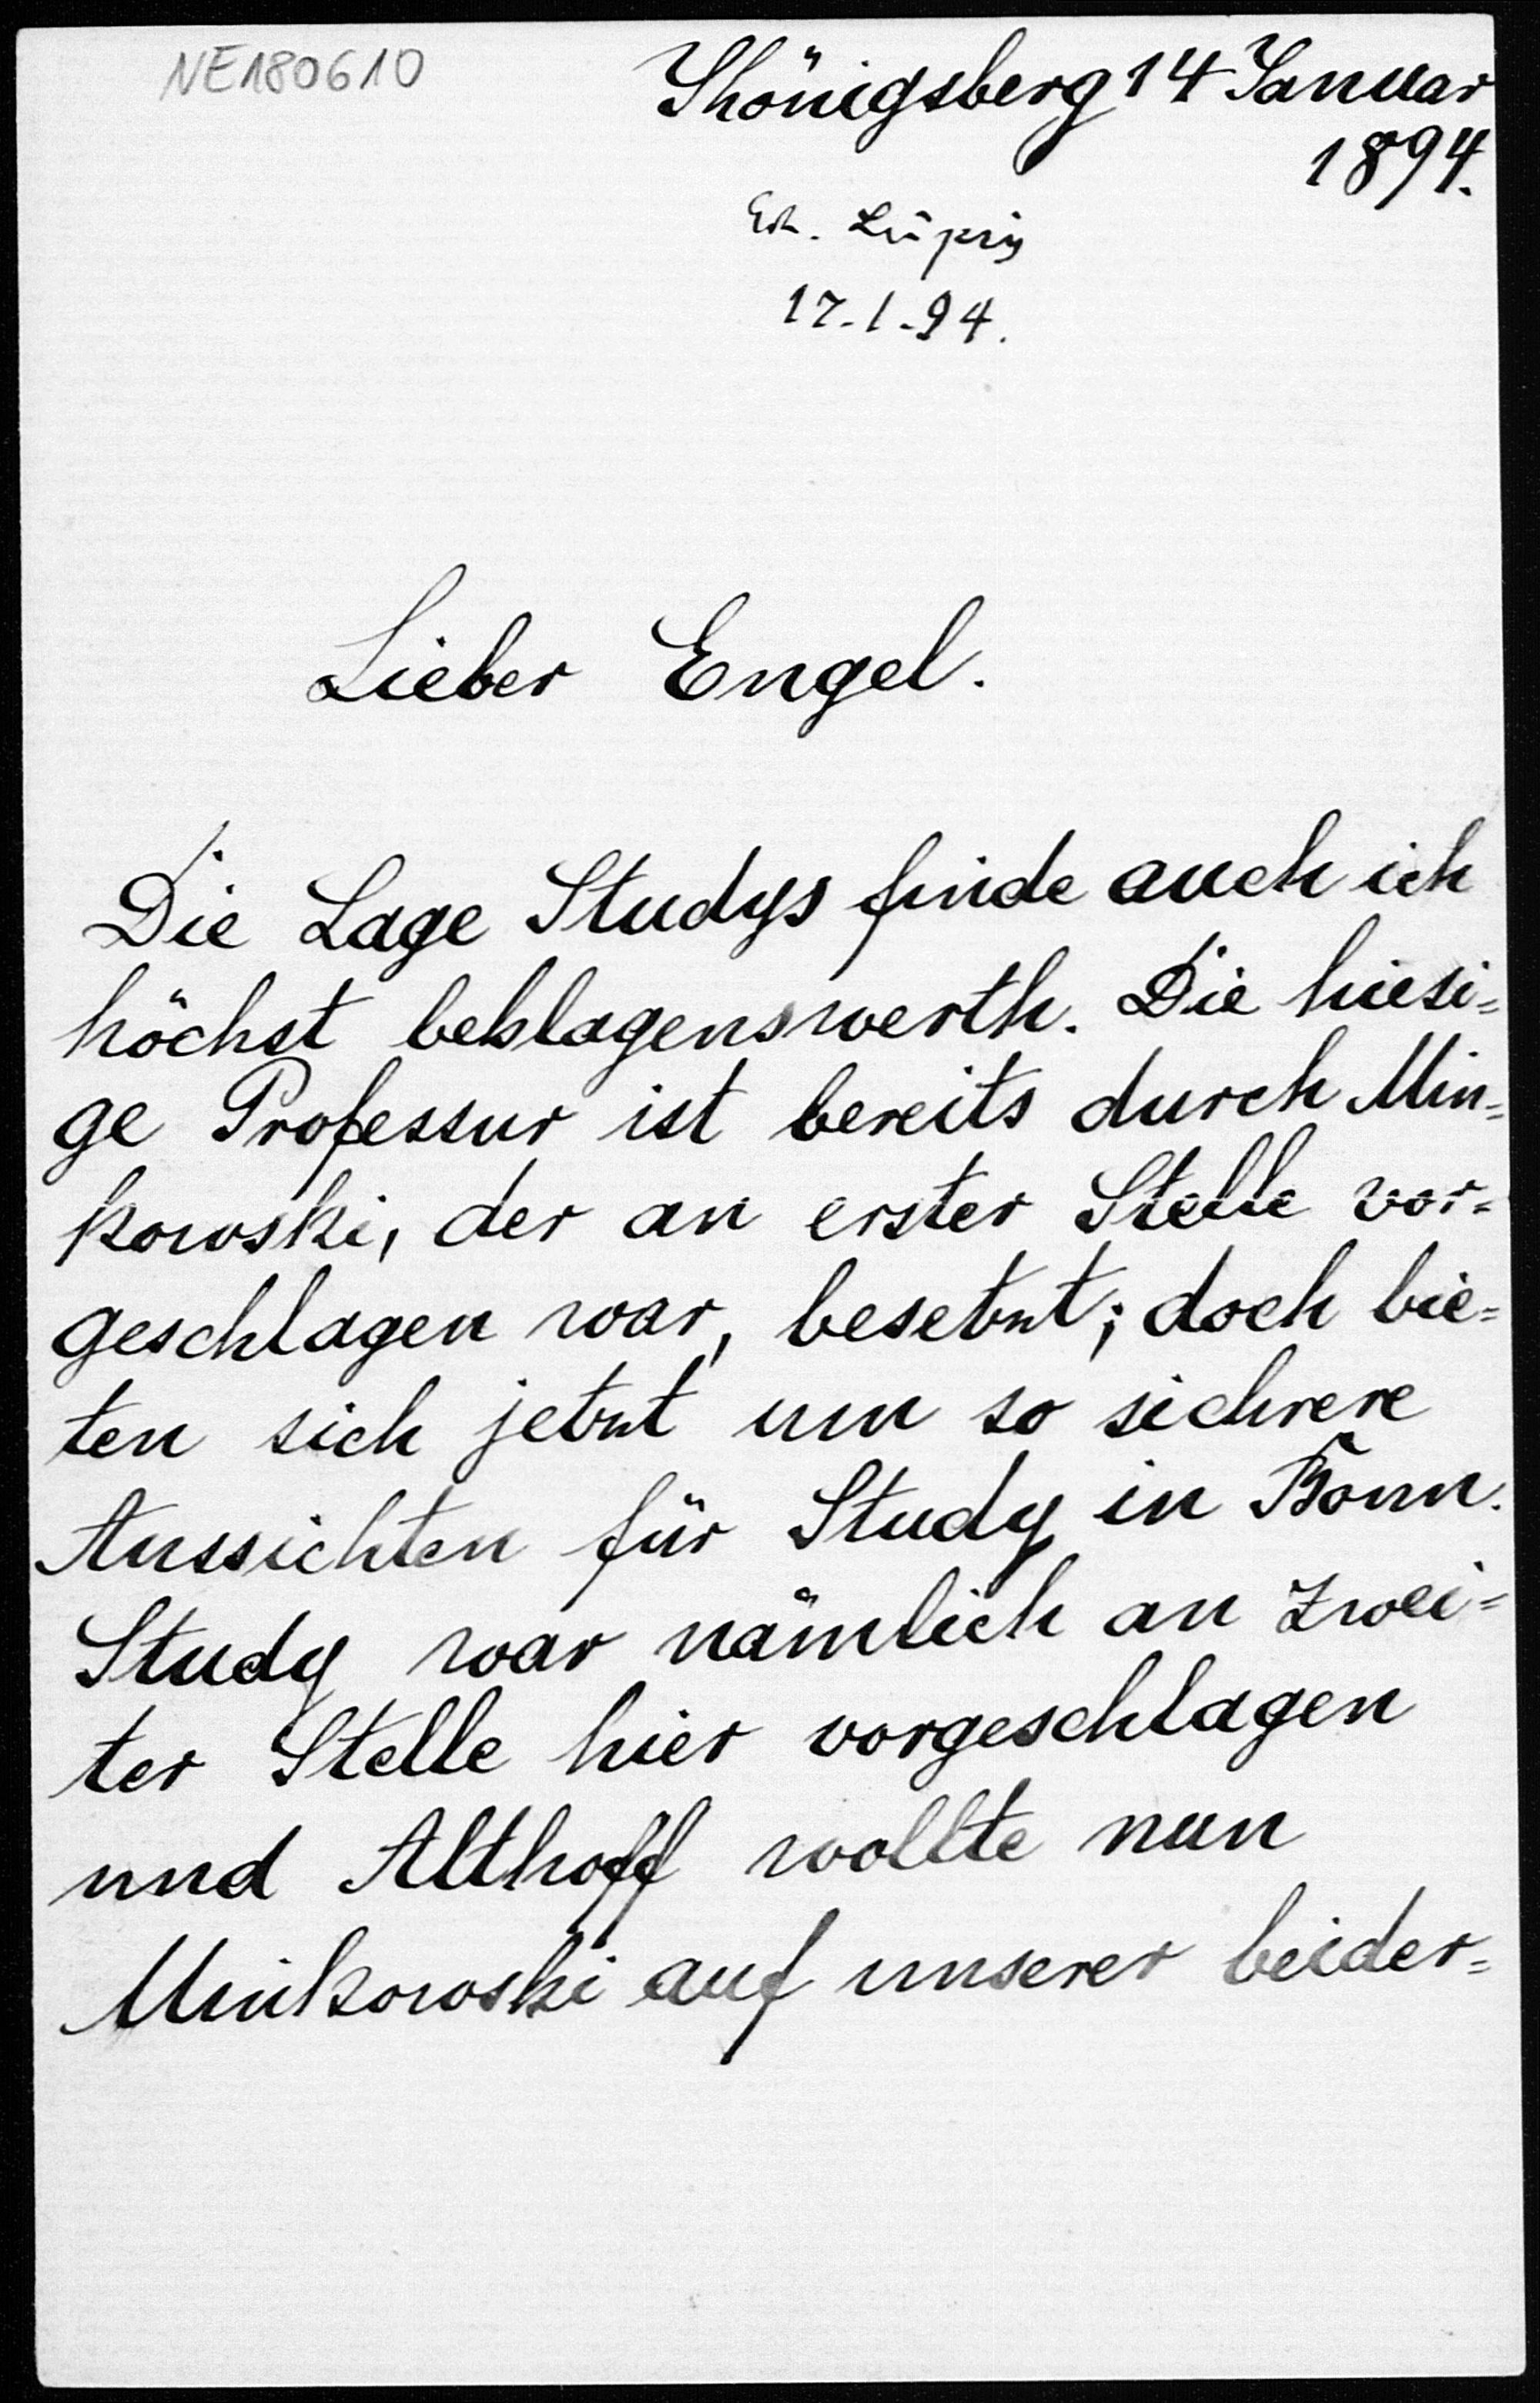 NE180610
Königsberg 14 Januar
1894.
Erh. Leipzig
17.1.94.
Lieber Engel.
Die Lage Studys finde auch ich
höchst beklagenswerth. Die hiesi=
ge Professur ist bereits durch Min=
kowski, der an erster Stelle vor=
geschlagen war, besetzt; doch bie=
ten sich jetzt um so sichrere
Aussichten für Study in Bonn.
Study war nämlich an zwei=
ter Stelle hier vorgeschlagen
und Althoff wollte nun
Minkowski auf unserer beider=